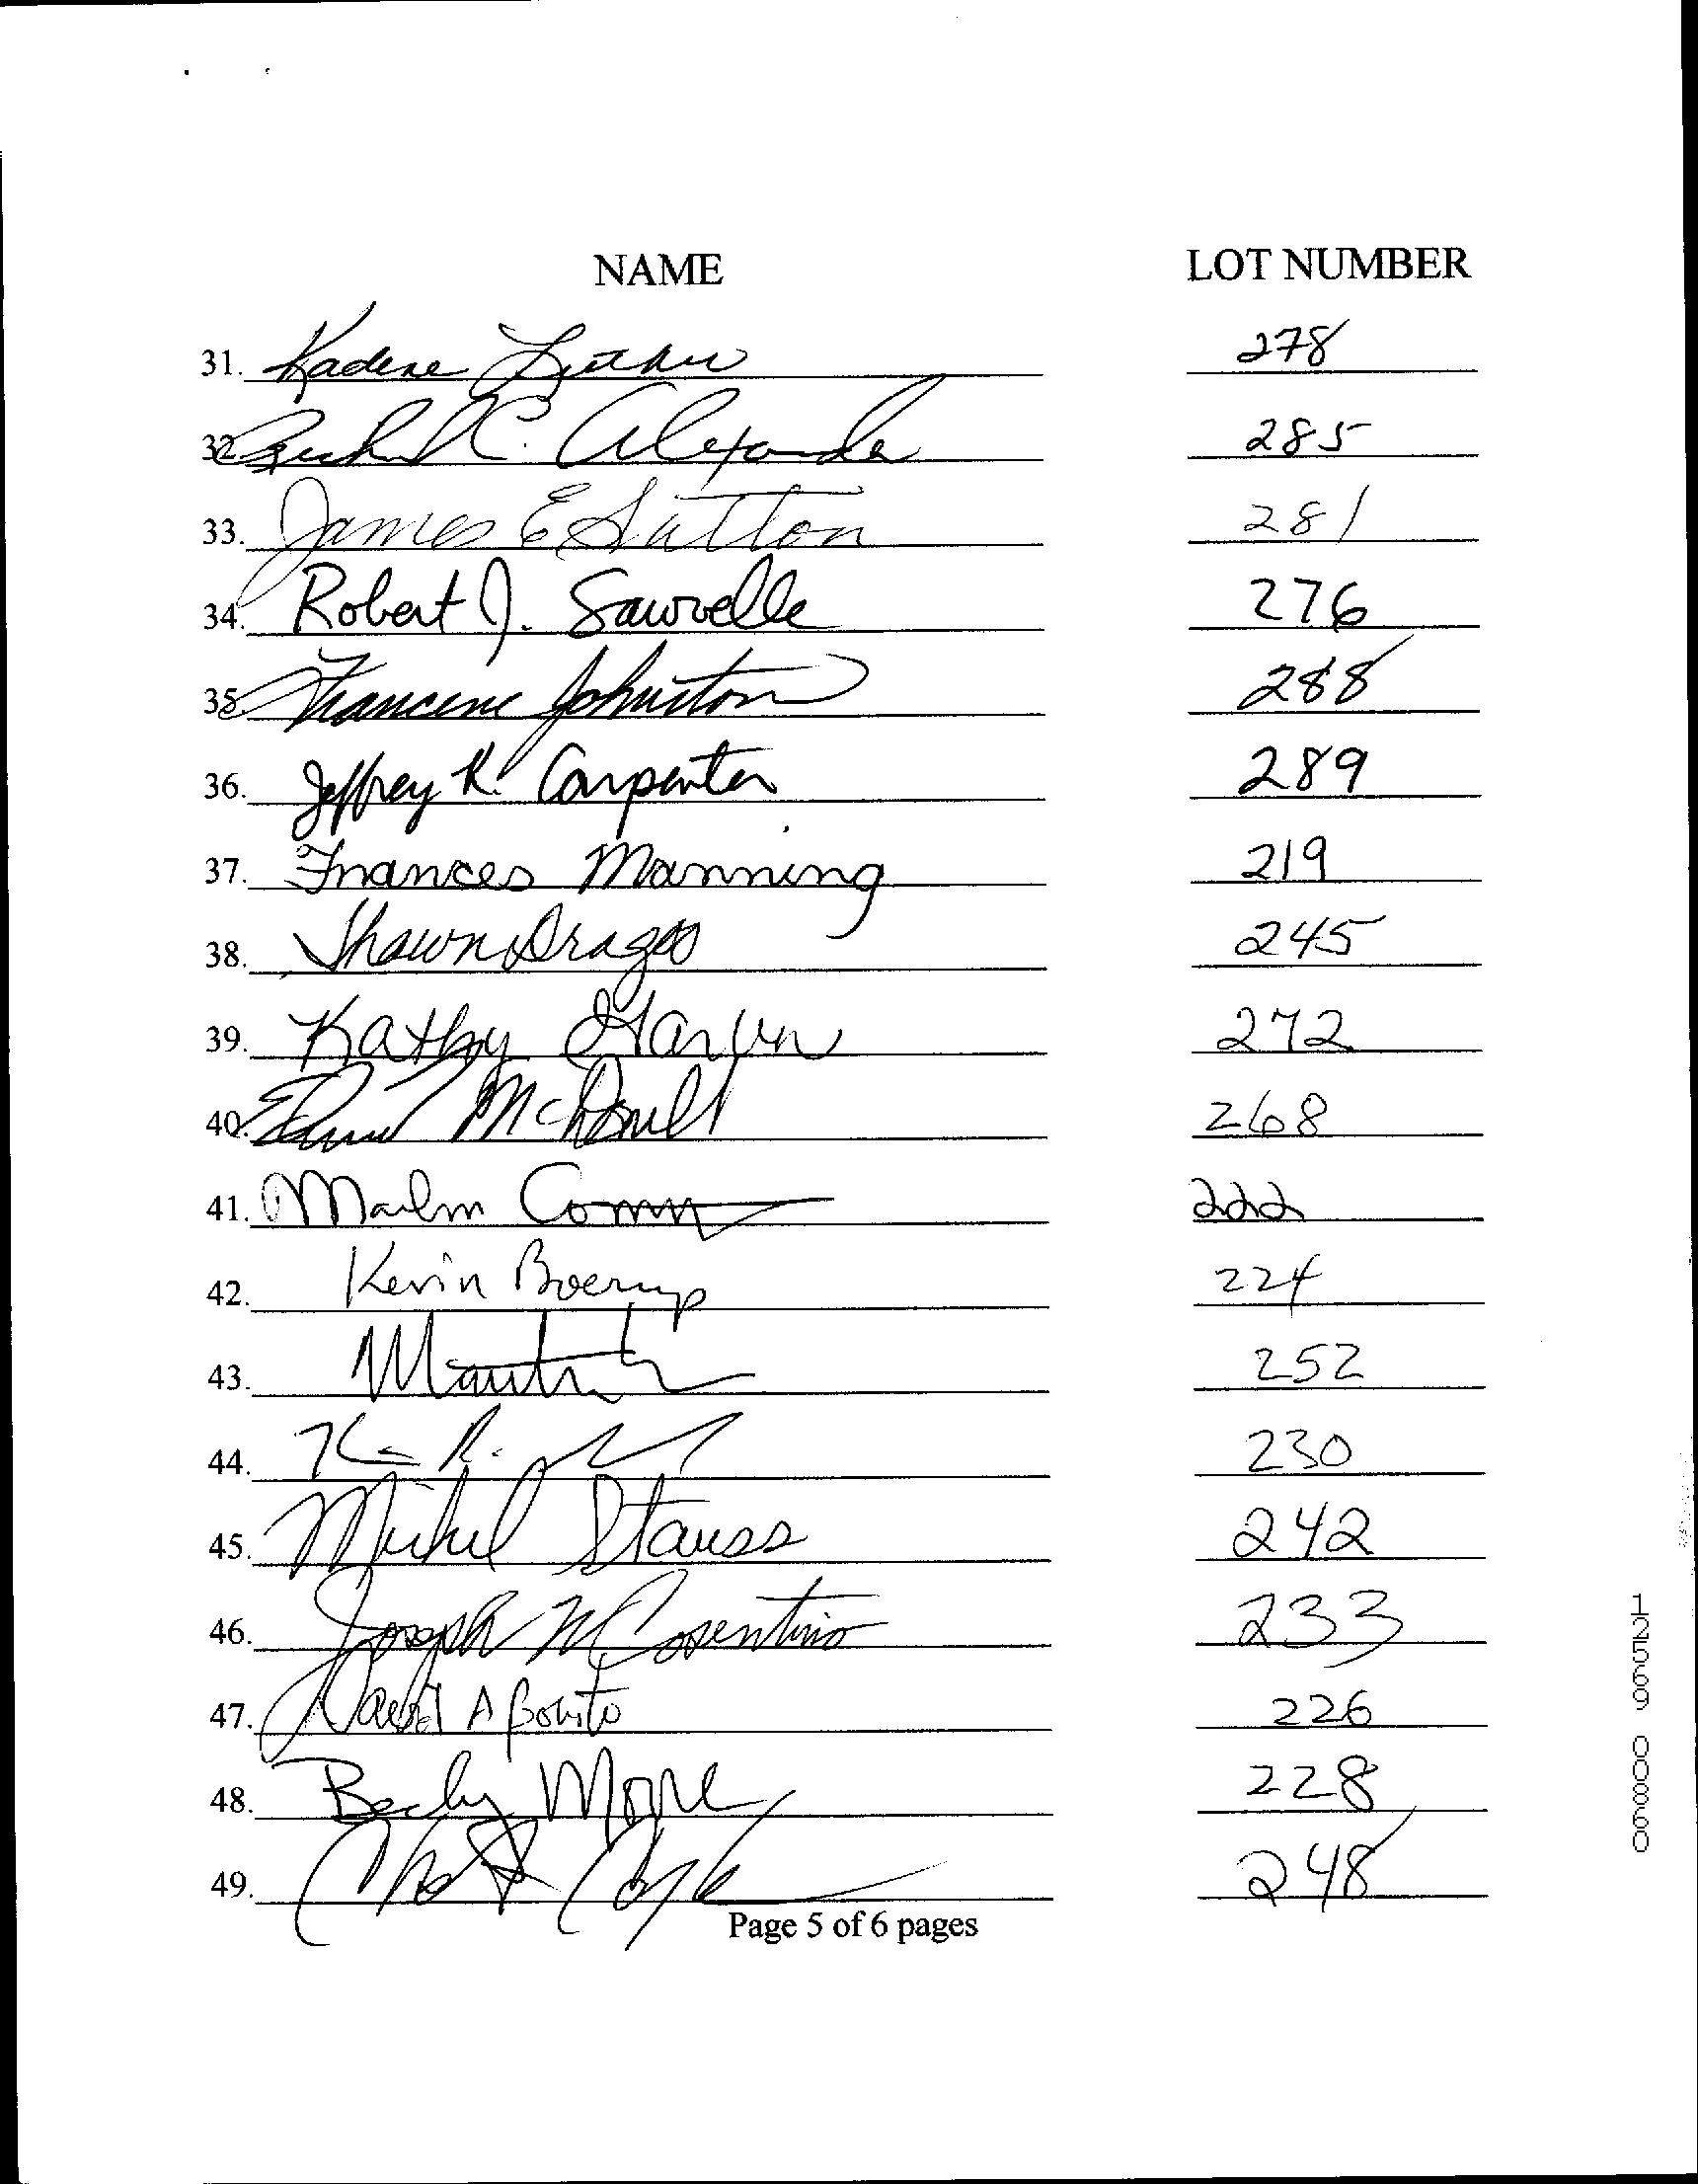 NAME LOT NUMBER
31. Kadene Luther 278
32. C. Alexander 285
33. James E Sutton 281
34. Robert J. Sawvelle 276
35. Francene Johnston 288
36. Jeffrey R. Carpenter 289
37. Frances Manning 219
38. Shawn Dragoo 245
39. Kathy Garvin 272
40. 268
41. 222
42. Kevin Boerup 224
43. 252
44. 230
45. Michel Stauss 242
46. Joseph M Cosentino 233
47. David Aponito 226
48. Becky Moore 228
49. 248
Page 5 of 6 pages
12569 00860